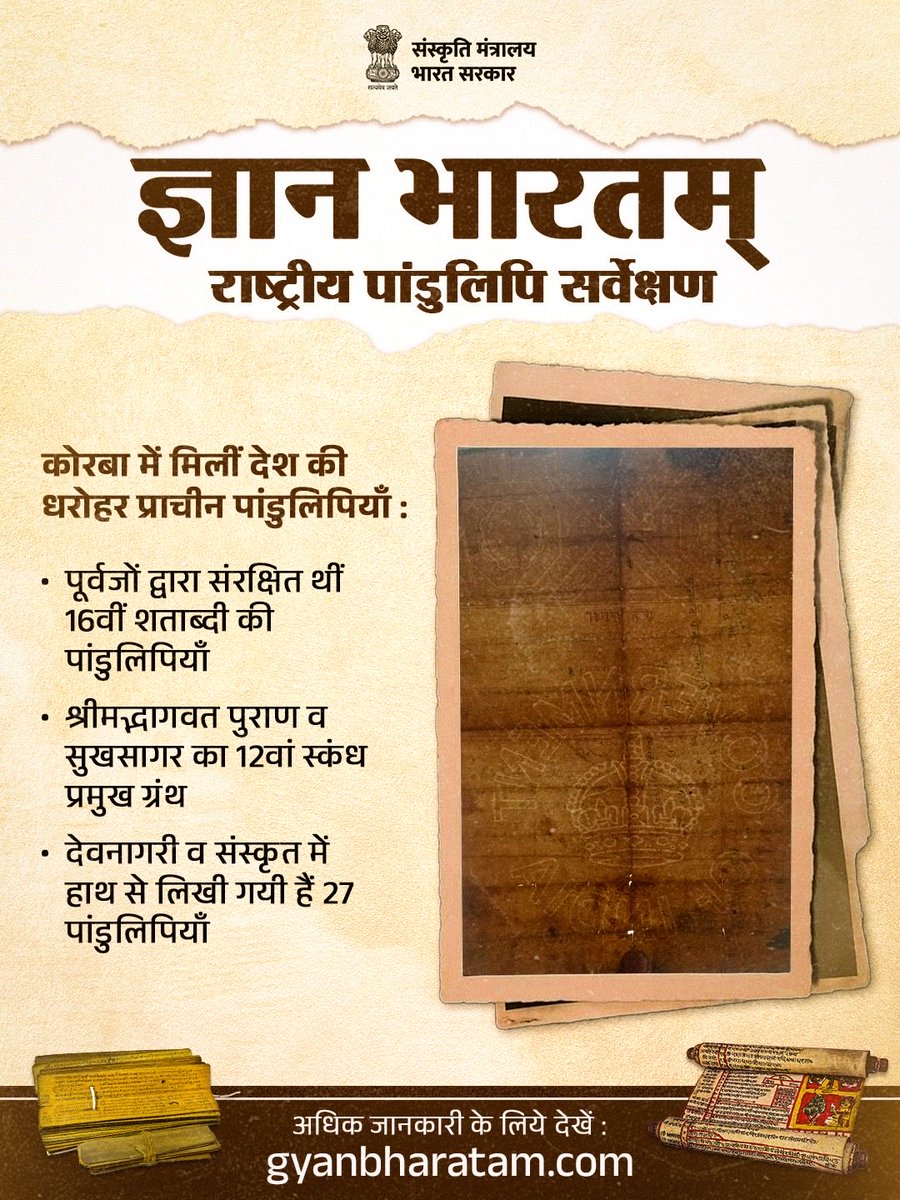 संस्कृति मंत्रालय
भारत सरकार
सत्यमेव जयते
ज्ञान भारतम्
राष्ट्रीय पांडुलिपि सर्वेक्षण
कोरबा में मिलीं देश की
धरोहर प्राचीन पांडुलिपियाँ :
• पूर्वजों द्वारा संरक्षित थीं
16वीं शताब्दी की
पांडुलिपियाँ
• श्रीमद्भागवत पुराण व
सुखसागर का 12वां स्कंध
प्रमुख ग्रंथ
• देवनागरी व संस्कृत में
हाथ से लिखी गयी हैं 27
पांडुलिपियाँ
अधिक जानकारी के लिये देखें :
gyanbharatam.com